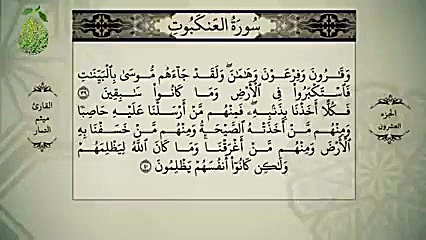 سُورَةُ العَنكَبُوتِ
وَقَٰرُونَ وَفِرْعَوْنَ وَهَٰمَٰنَ ۖ وَلَقَدْ جَآءَهُم مُّوسَىٰ بِالْبَيِّنَٰتِ
فَاسْتَكْبَرُوا۟ فِى الْأَرْضِ وَمَا كَانُوا۟ سَٰبِقِينَ ﴿٣٩﴾
فَكُلًّا أَخَذْنَا بِذَنۢبِهِۦ ۖ فَمِنْهُم مَّنْ أَرْسَلْنَا عَلَيْهِ حَاصِبًا
وَمِنْهُم مَّنْ أَخَذَتْهُ الصَّيْحَةُ وَمِنْهُم مَّنْ خَسَفْنَا بِهِ
الْأَرْضَ وَمِنْهُم مَّنْ أَغْرَقْنَا ۚ وَمَا كَانَ اللَّهُ لِيَظْلِمَهُمْ
وَلَٰكِن كَانُوٓا۟ أَنفُسَهُمْ يَظْلِمُونَ ﴿٤٠﴾
الجزء
العشرون
القارئ
ميثم
التمار